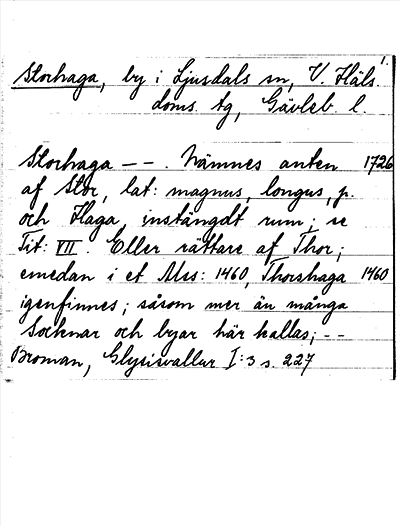 1.
Storhaga, by i Ljusdals sn, V. Häls.
doms. tg, Gävleb. l.
Storhaga – – . Nämnes anten 1726
af Stor, lat: magnus, longus, p.
och Haga, instängdt rum; se
Tit: VII. Eller rättare af Thor;
emedan i et Mss: 1460, Thorshaga 1460
igenfinnes; såsom mer än många
Socknar och byar här kallas; – –
Broman, Glysisvallur I:3 s. 227